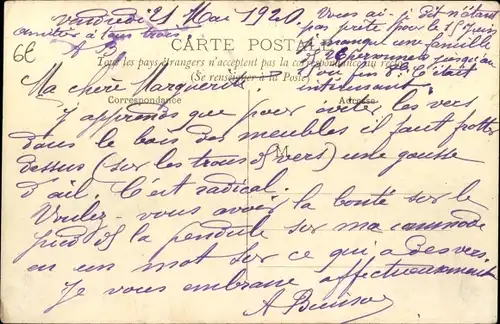 Vendredi 21 Mai 1920.
amitiés à tous trois
A B
Vous ai-je dit n'étant
pas prête pour le 15 Juin
j'manque une famille
de personnes jusqu'au
ou fin c'était
intéressant.
6E
CARTE POSTALE
Tous les pays étrangers n'acceptent pas la correspondance au recto
(Se renseigner à la Poste)
Ma chère Marguerite
Correspondance Adresse
J'apprends que pour éviter les vers
dans le bois des meubles il faut frotter
dessus (sur les trous de vers) une gousse
d'ail. C'est radical.
Voulez-vous avoir la bonté sur le
pied de la pendule sur ma commode
en un mot sur ce qui a des vers.
Je vous embrasse affectueusement
A Buisson